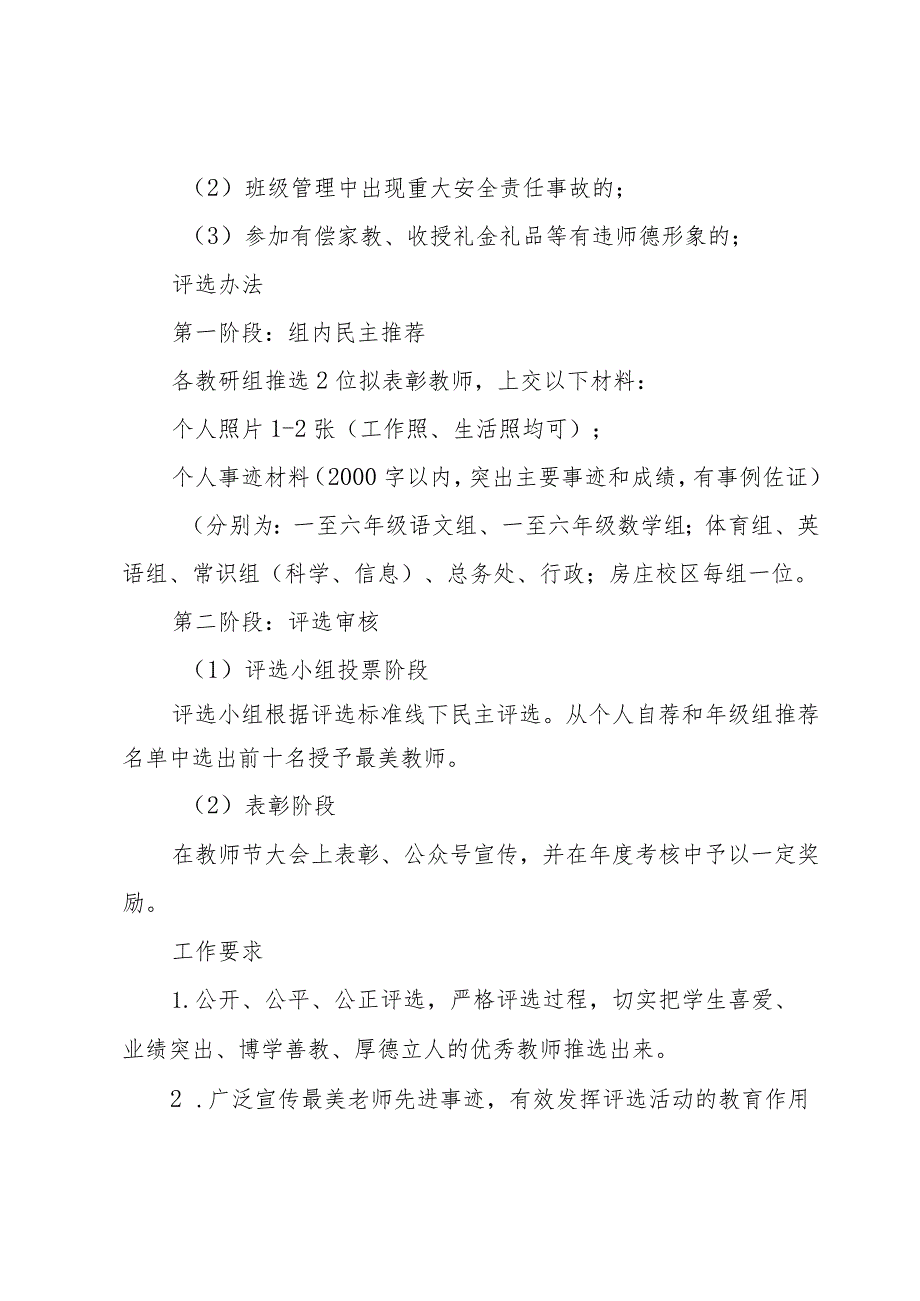 （2）班级管理中出现重大安全责任事故的；
（3）参加有偿家教、收授礼金礼品等有违师德形象的；
评选办法
第一阶段：组内民主推荐
各教研组推选2位拟表彰教师，上交以下材料：
个人照片1-2张（工作照、生活照均可）；
个人事迹材料（2000字以内，突出主要事迹和成绩，有事例佐证）
（分别为：一至六年级语文组、一至六年级数学组；体育组、英
语组、常识组（科学、信息）、总务处、行政；房庄校区每组一位。
第二阶段：评选审核
（1）评选小组投票阶段
评选小组根据评选标准线下民主评选。从个人自荐和年级组推荐
名单中选出前十名授予最美教师。
（2）表彰阶段
在教师节大会上表彰、公众号宣传，并在年度考核中予以一定奖
励。
工作要求
1.公开、公平、公正评选，严格评选过程，切实把学生喜爱、
业绩突出、博学善教、厚德立人的优秀教师推选出来。
2 .广泛宣传最美老师先进事迹，有效发挥评选活动的教育作用